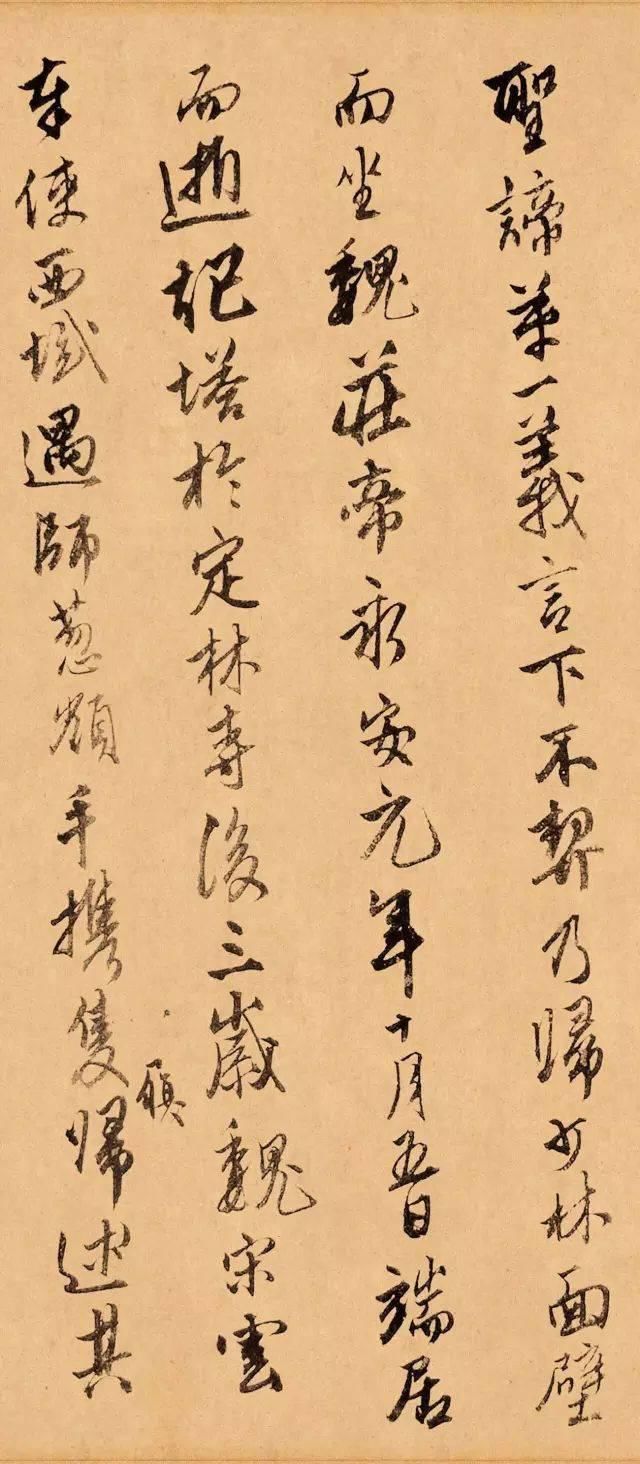 聖諦第一義言下不契乃歸少林面壁
而坐魏莊帝永安元年十月五日端居
而逝起塔於定林寺後三歲魏宋雲
奉使西域遇師葱嶺手携隻歸述其
履